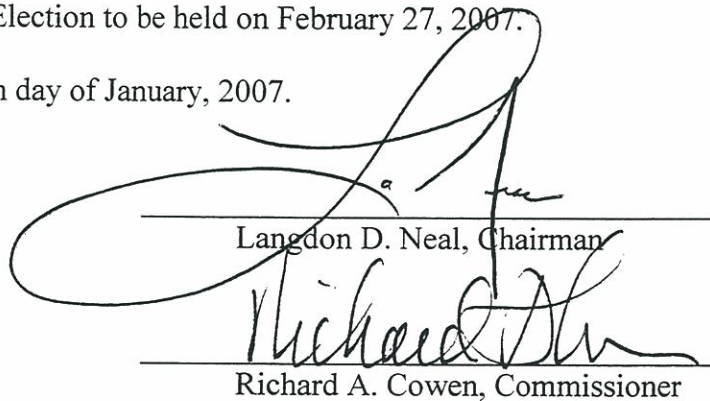 Election to be held on February 27, 2007.
day of January, 2007.
Langdon D. Neal, Chairman
Richard
Richard A. Cowen, Commissioner